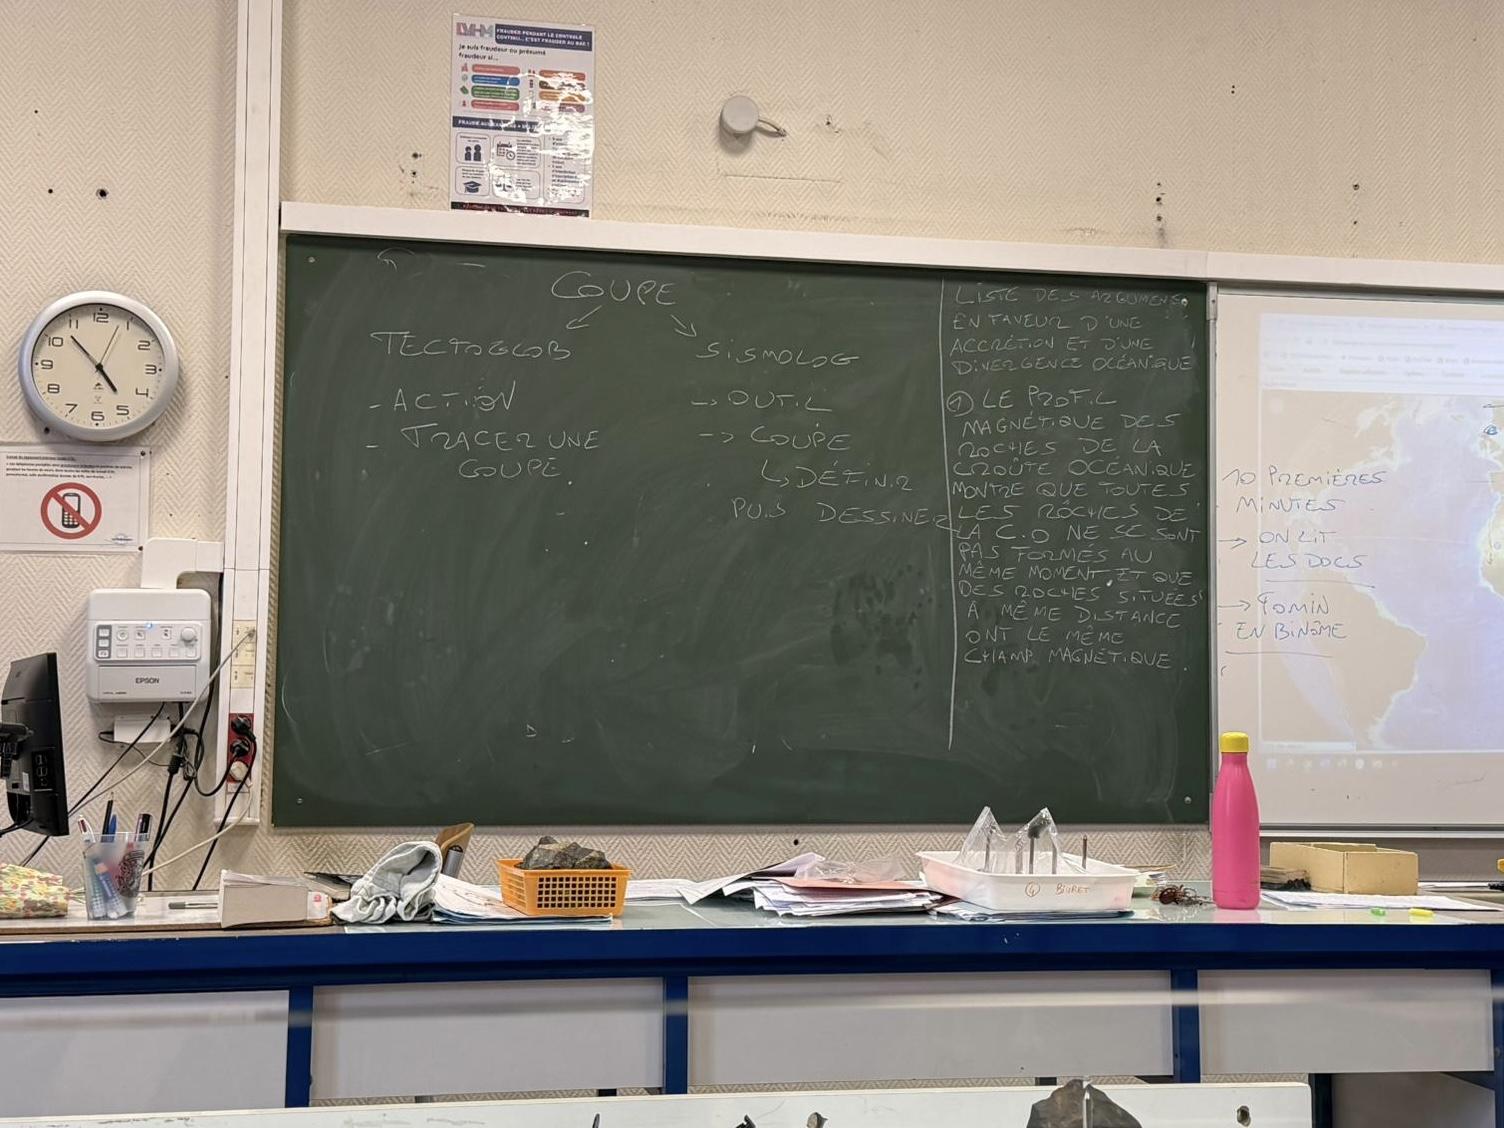 FRAUDER PENDANT LE CONTRÔLE
CONTINU... C'EST FRAUDER AU BAC !
Je suis fraudeur ou présumé
fraudeur si...
COUPE
TECTOGLOB
- ACTION
- TRACER UNE
COUPE.
SISMOLOG
-> OUTIL
-> COUPE
↳ DÉFINIR
PUIS DESSINER
LISTE DES ARGUMENTS
EN FAVEUR D'UNE
ACCRÉTION ET D'UNE
DIVERGENCE OCÉANIQUE
① LE PROFIL
MAGNÉTIQUE DES
ROCHES DE LA
CROÛTE OCÉANIQUE
MONTRE QUE TOUTES
LES ROCHES DE
LA C.O NE SE SONT
PAS FORMÉS AU
MÊME MOMENT ET QUE
DES ROCHES SITUÉES
À MÊME DISTANCE
ONT LE MÊME
CHAMP MAGNÉTIQUE.
10 PREMIÈRES
MINUTES
-> ON LIT
LES DOCS
-> 40MIN
EN BINÔME
11 12 1
10 2
9 3
8 4
7 6 5
EPSON
④ BIURET